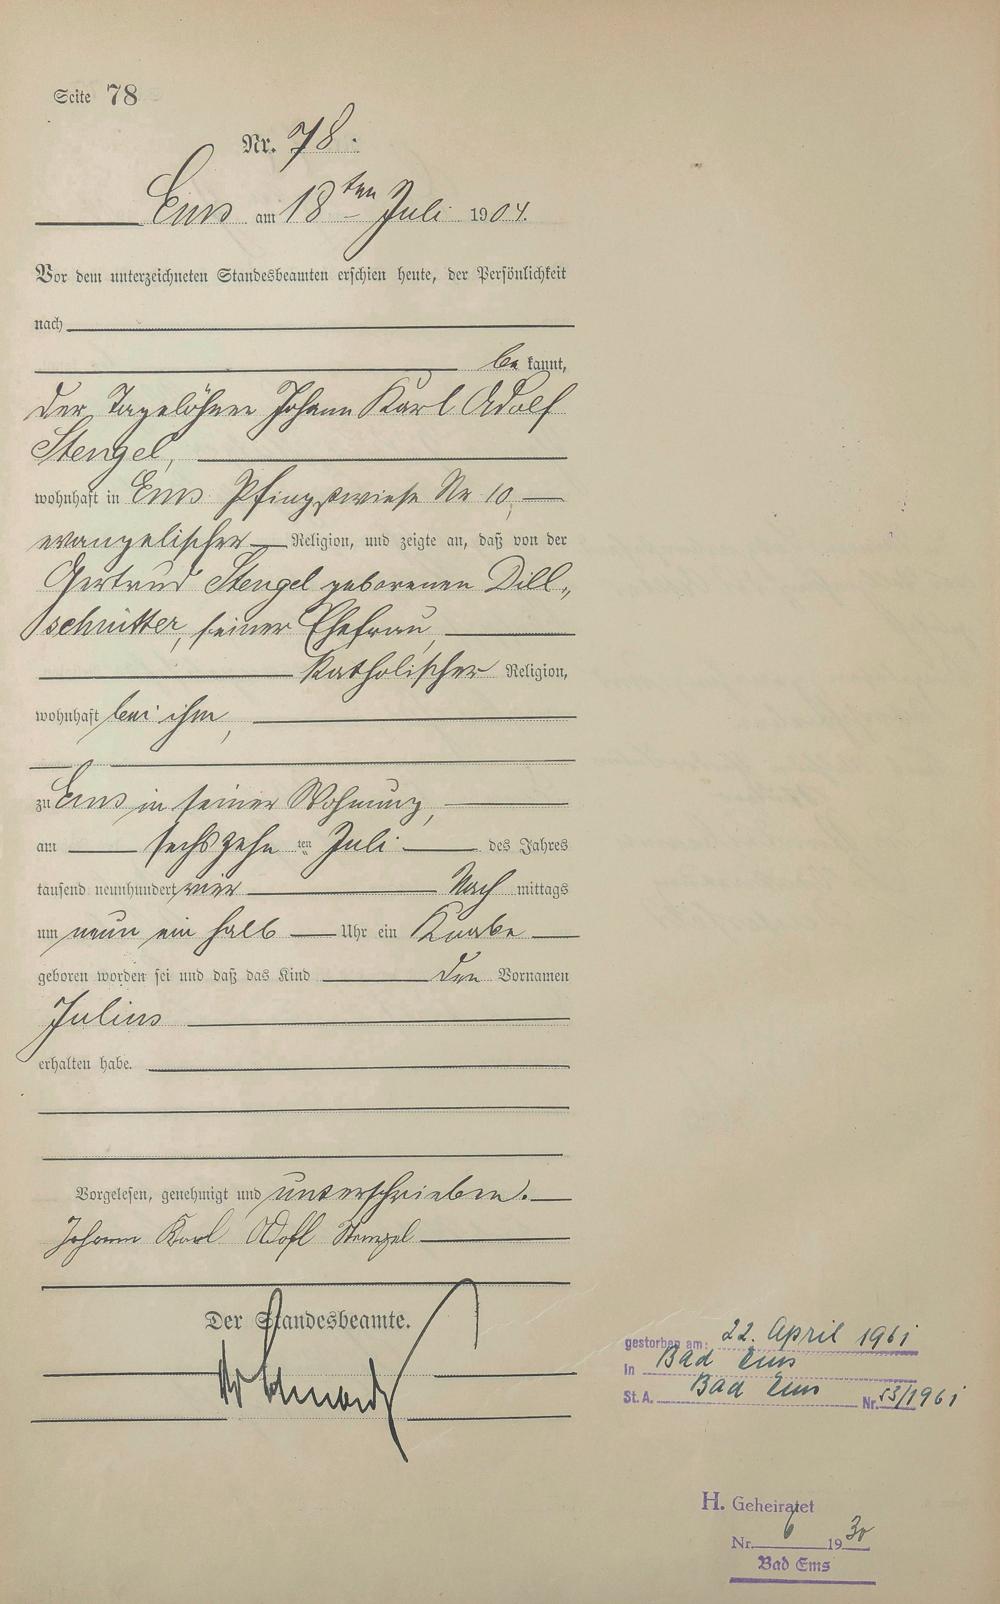 Seite 78
Nr. 78.
Ems am 18ten Juli 1904.
Vor dem unterzeichneten Standesbeamten erschien heute, der Persönlichkeit
nach
be kannt,
der Tagelöhner Johann Karl Adolf
Stengel,
wohnhaft in Ems Pfingstwiese Nr 10,
evangelischer Religion, und zeigte an, daß von der
Gertrud Stengel geborenen Dill„
schnitter, seiner Ehefrau,
katholischer Religion,
wohnhaft bei ihm,
zu Ems in seiner Wohnung,
am sechszehn ten Juli des Jahres
tausend neunhundert vier Nach mittags
um neun ein halb Uhr ein Knabe
geboren worden sei und daß das Kind den Vornamen
Julius
erhalten habe.
Vorgelesen, genehmigt und unterschrieben.
Johann Karl Adolf Stengel
Der Standesbeamte.
gestorben am: 22. April 1961
In Bad Ems
St. A. Bad Ems Nr. 53/1961
H. Geheiratet
Nr. 6 1930
Bad Ems